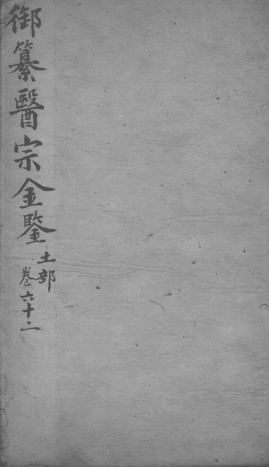 御纂醫宗金鑒
土部
卷六十二